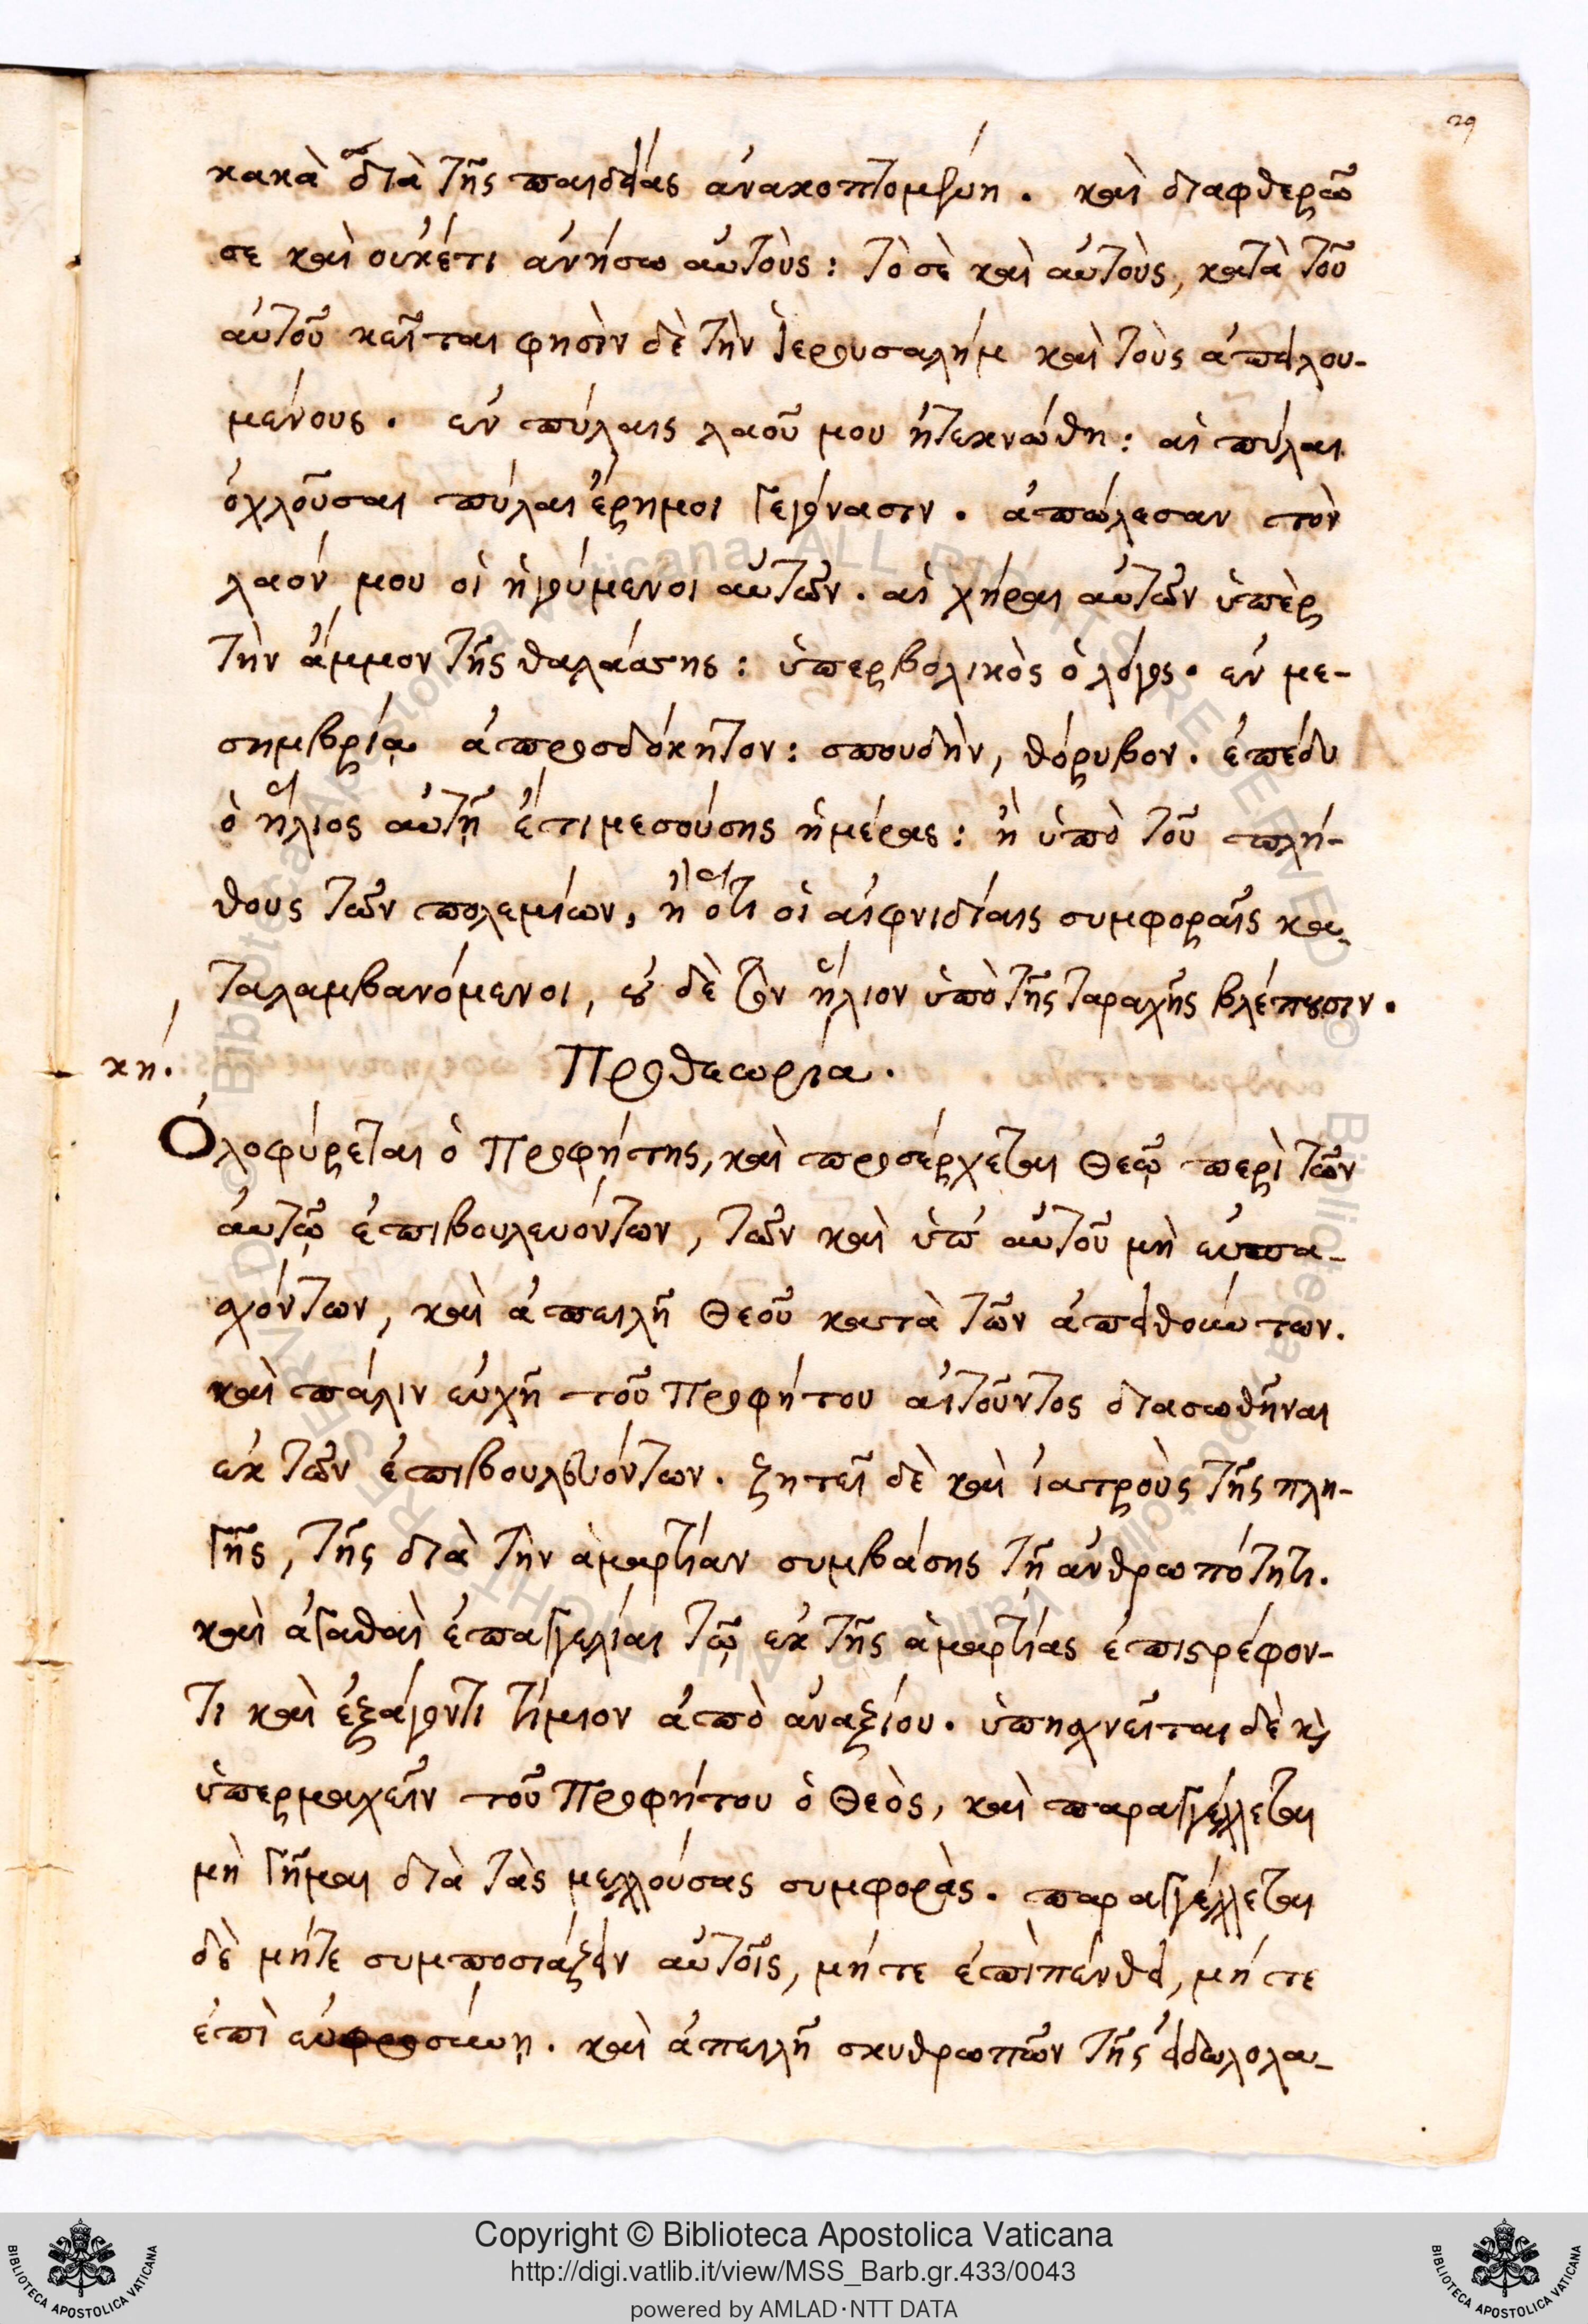 29
κακὰ διὰ τῆς παιδείας ἀνακοπτομένη. καὶ διαφθερῶ
σε καὶ οὐκέτι ἀνήσω αὐτούς: τὸ σὲ καὶ αὐτοὺς, κατὰ τοῦ
αὐτοῦ κεῖται φησὶν δὲ τὴν Ἱερουσαλήμ καὶ τοὺς ἀπειλου-
μένους. ἐν πύλαις λαοῦ μου ἠτεκνώθη: αἱ πύλαι
ὀχλοῦσαι πύλαι ἔρημοι γεγόνασιν. ἀπώλεσαν τὸν
λαόν μου οἱ ἡγούμενοι αὐτῶν. αἱ χῆραι αὐτῶν ὑπὲρ
τὴν ἄμμον τῆς θαλάσσης: ὑπερβολικὸς ὁ λόγος. ἐν με-
σημβρίᾳ ἀπροσδόκητον: σπουδὴν, θόρυβον. ἐπέδυ
ὁ ἥλιος αὐτῇ ἔτι μεσούσης ἡμέρας: ἢ ὑπὸ τοῦ πλή-
θους τῶν πολεμίων, ἢ ὅτι οἱ αἰφνιδίαις συμφοραῖς κα-
ταλαμβανόμενοι, οὐ δὲ τὸν ἥλιον ὑπὸ τῆς ταραχῆς βλέπουσιν.
κη. Προθεωρία.
Ὀλοφύρεται ὁ Προφήτης, καὶ προσέρχεται Θεῷ περὶ τῶν
αὐτῷ ἐπιβουλευόντων, τῶν καὶ ὑπ' αὐτοῦ μὴ εὐπα-
σχόντων, καὶ ἀπειλῇ Θεοῦ κατὰ τῶν ἀπειθούντων.
καὶ πάλιν εὐχῇ τοῦ Προφήτου αἰτοῦντος διασωθῆναι
ἐκ τῶν ἐπιβουλευόντων. ζητεῖ δὲ καὶ ἰατροὺς τῆς πλη-
γῆς, τῆς διὰ τὴν ἁμαρτίαν συμβάσης τῇ ἀνθρωπότητι.
καὶ ἀγαθαὶ ἐπαγγελίαι τῷ ἐκ τῆς ἁμαρτίας ἐπιστρέφον-
τι καὶ ἐξάγοντι τίμιον ἀπὸ ἀναξίου. ὑπησχνεῖται δὲ κὶ
ὑπερμαχεῖν τοῦ Προφήτου ὁ Θεὸς, καὶ παραγγέλλεται
μὴ γῆμαι διὰ τὰς μελλούσας συμφορὰς. παραγγέλλεται
δὲ μήτε συμποσιάζειν αὐτοῖς, μήτε ἐπὶ πένθει, μήτε
ἐπὶ εὐφροσύνῃ. καὶ ἀπειλῇ σκυθρωπῶν τῆς εἰδωλολα-
Copyright © Biblioteca Apostolica Vaticana
http://digi.vatlib.it/view/MSS_Barb.gr.433/0043
powered by AMLAD·NTT DATA
BIBLIOTECA APOSTOLICA VATICANA
BIBLIOTECA APOSTOLICA VATICANA